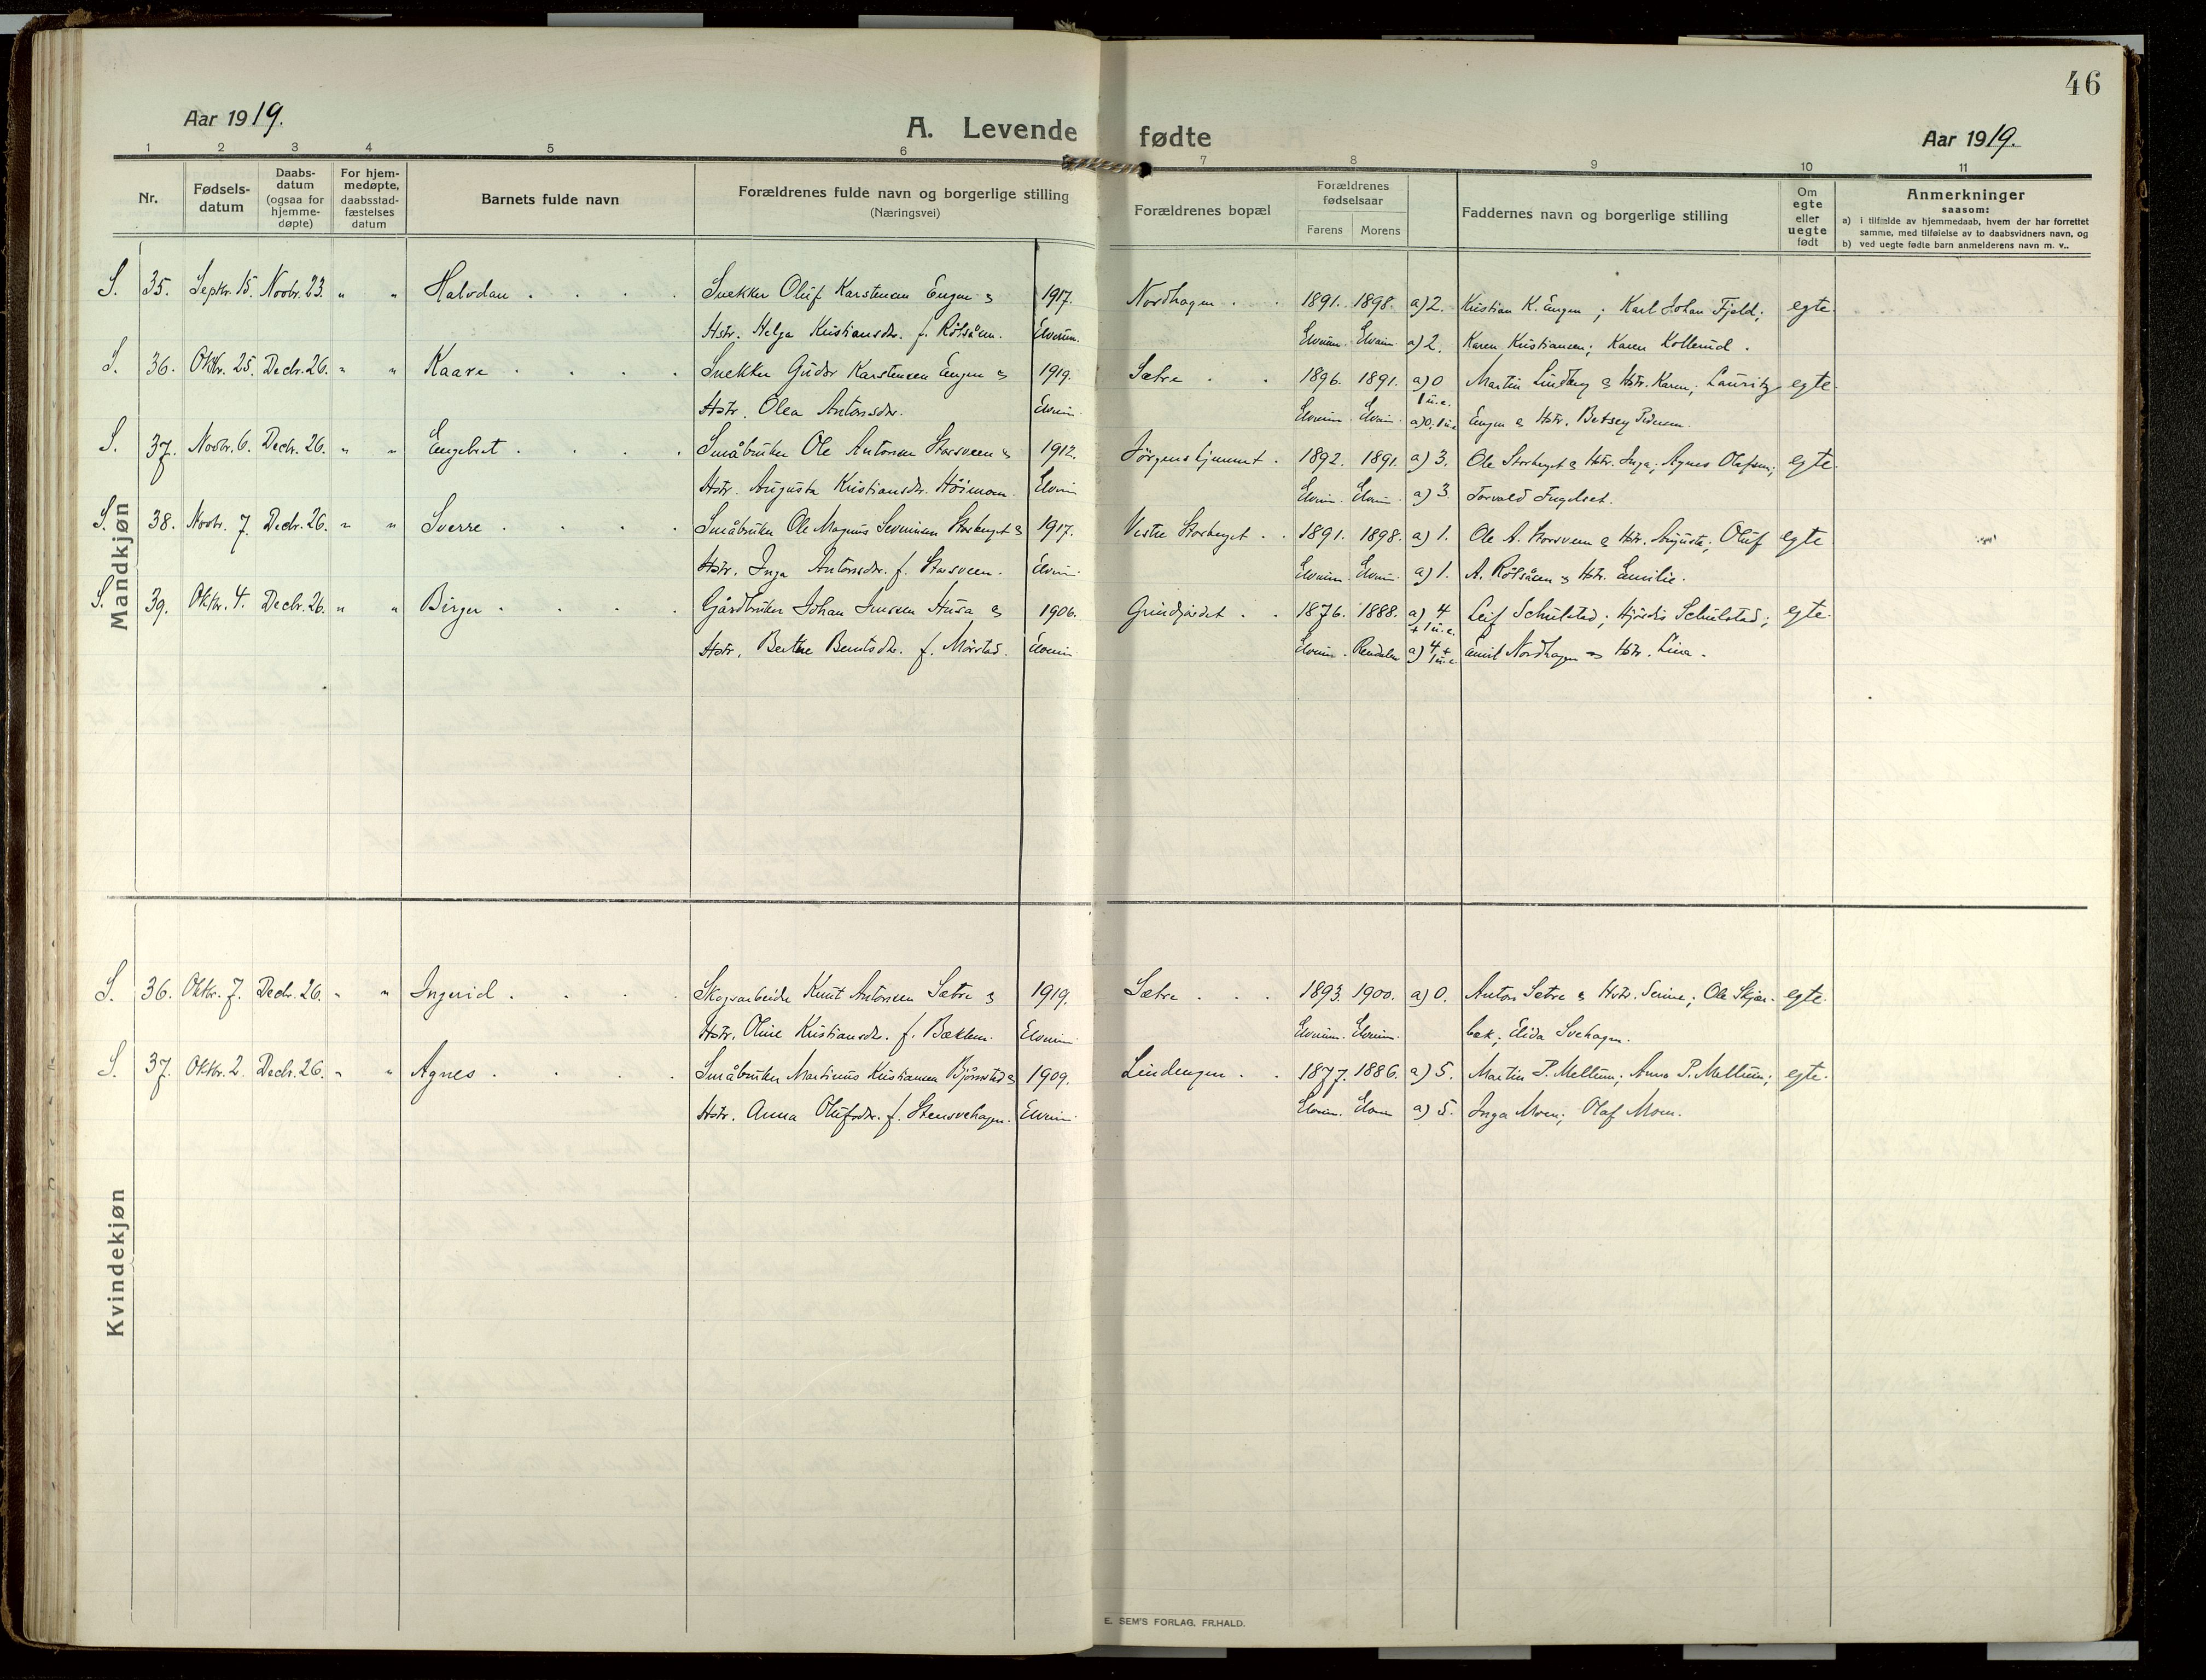 46
Aar 1919.
A. Levende fødte
Aar 1919.
1 2 3 4 5 6 7 8 9 10 11
Nr.
Fødsels-
datum
Daabs-
datum
(ogsaa for
hjemme-
døpte)
For hjem-
medøpte,
daabsstad-
fæstelses
datum
Barnets fulde navn
Forældrenes fulde navn og borgerlige stilling
(Næringsvei)
Forældrenes bopæl
Forældrenes
fødselsaar
Farens Morens
Faddernes navn og borgerlige stilling
Om
egte
eller
uegte
født
Anmerkninger
saasom:
a) i tilfælde av hjemmedaab, hvem der har forrettet
samme, med tilføielse av to daabsvidners navn, og
b) ved uegte fødte barn anmelderens navn m. v..
Mandkjøn
S. 35. Septbr. 15. Novbr. 23. " " Halvdan . . . . Snekker Oluf Karstensen Engen & 1917. Nordhagen . . 1891. 1898. a) 2. Kristian K. Engen ; Karl Johan Fjeld ; egte.
Hstr. Helga Kristiansdr. f. Rötsåen. Elverum. Elverum. Elverum. a) 2. Karen Kristiansen ; Karen Kollerud .
S. 36. Oktbr. 25. Decbr. 26. " " Kaare . . . . Snekker Gudbr Karstensen Engen & 1919. Sætre . . 1896. 1891. a) 0 1 u.e. Martin Lindberg & Hstr. Karen ; Lauritz egte.
Hstr. Olea Antonsdr. Elverum. Elverum. Elverum. a) 0. 1 u.e. Engen & Hstr. Betsey Pedersen.
S. 37. Novbr. 6. Decbr. 26. " " Engebret . . . . Småbruker Ole Antonsen Storsveen & 1912. Jörgenshjemmet . 1892. 1891. a) 3. Ole Storberget & Hstr. Inga ; Agnes Olafsen ; egte.
Hstr. Augusta Kristiansdr. Höimoen. Elverum Elverum. Elverum. a) 3. Torvald Engelset.
S. 38. Novbr. 7. Decbr. 26. " " Sverre . . . . Småbruker Ole Magnus Severinsen Storberget & 1917. Vestre Storberget . . 1891. 1898. a) 1. Ole A. Storsveen & Hstr. Augusta ; Oluf egte
Hstr. Inga Antonsdr. f. Storsveen. Elverum. Elverum. Elverum. a) 1. A. Rötsåen & Hstr. Emilie.
S. 39. Oktbr. 4. Decbr. 26. " " Birger . . . . Gårdbruker Johan Jensen Husa & 1906. Grindjordet . . 1876. 1888. a) 4 + 1 u.e. Leif Schulstad ; Hjördis Schulstad ; egte.
Hstr. Berthe Berntsdr. f. Mörstad. Elverum Elverum. Rendalen a) 4 + 1 u.e. Emil Nordhagen & Hstr. Lina.
Kvindekjøn
S. 36. Oktbr. 7. Decbr. 26. " " Ingerid . . . . Skogsarbeider Knut Antonsen Sætre & 1919. Sætre . . . 1893. 1900. a) 0. Anton Sætre & Hstr. Serine ; Ole Skjær- egte.
Hstr. Oline Kristiansdr. f. Bæklem. Elverum Elverum. Elverum. bæk ; Elida Svehagen.
S. 37. Oktbr. 2. Decbr. 26. " " Agnes . . . . Småbruker Martinus Kristiansen Björnstad & 1909. Lindengen . . 1877. 1886. a) 5. Martin P. Mellum ; Anna P. Mellum ; egte.
Hstr. Anna Olufsdr. f. Stensvehagen. Elverum Elverum. Elverum a) 5. Inga Moen ; Olaf Moen.
E. SEM'S FORLAG, FR.HALD.